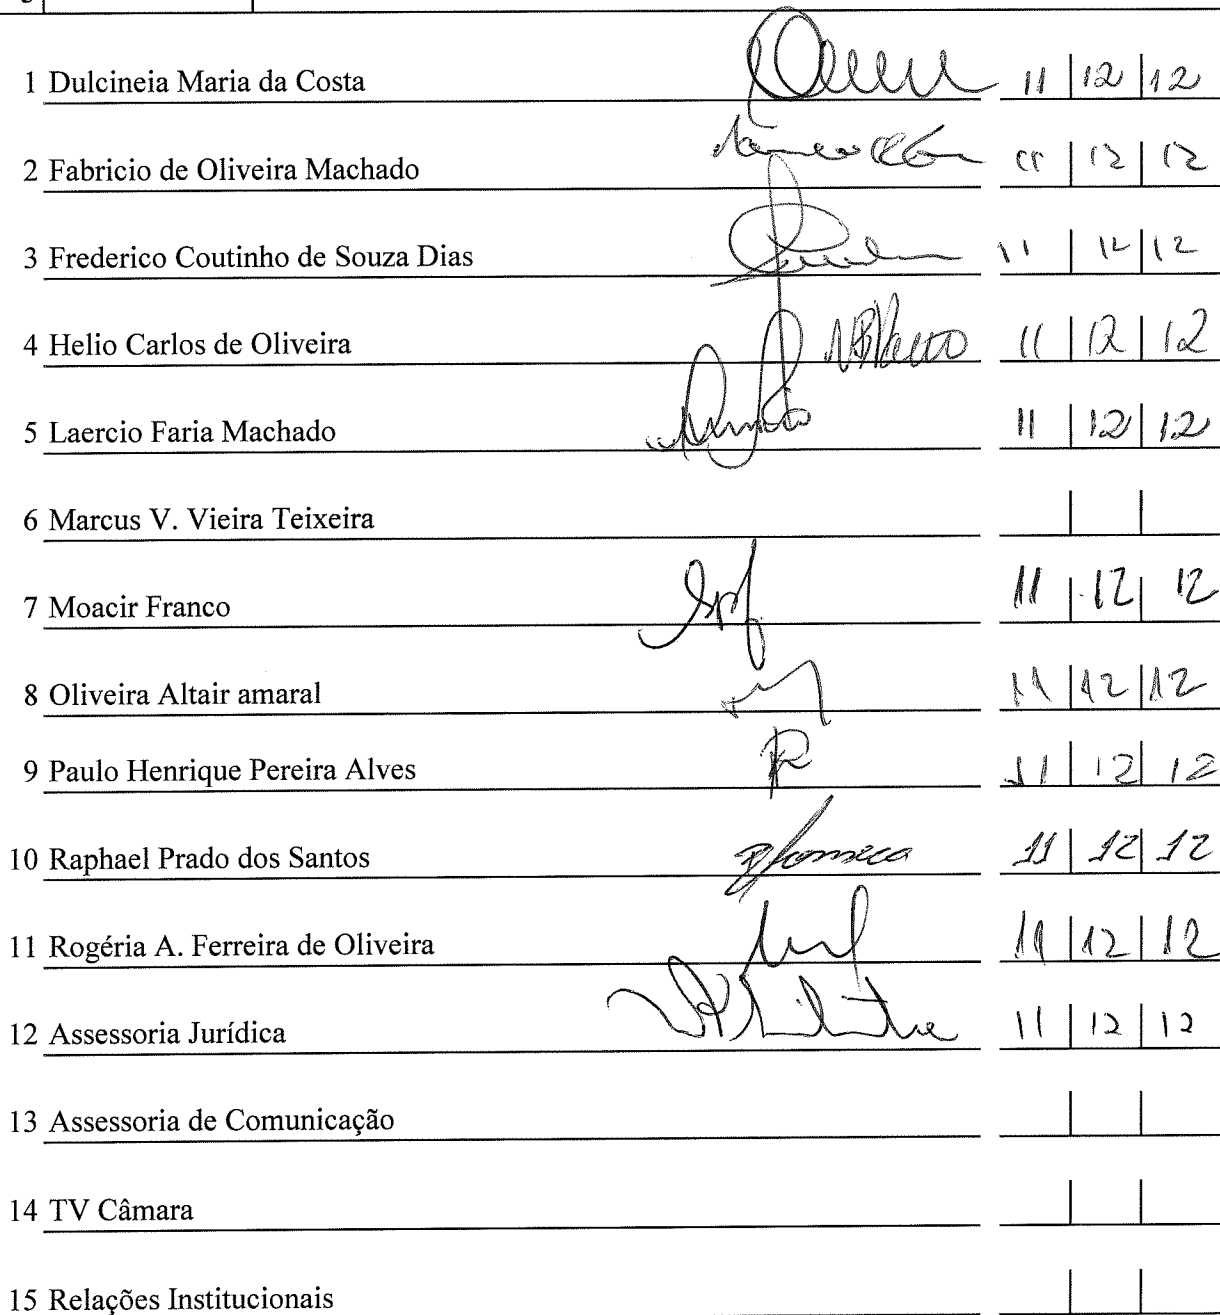 1 Dulcineia Maria da Costa 11 12 12
2 Fabricio de Oliveira Machado 11 12 12
3 Frederico Coutinho de Souza Dias 11 12 12
4 Helio Carlos de Oliveira 11 12 12
5 Laercio Faria Machado 11 12 12
6 Marcus V. Vieira Teixeira
7 Moacir Franco 11 12 12
8 Oliveira Altair amaral 11 12 12
9 Paulo Henrique Pereira Alves 11 12 12
10 Raphael Prado dos Santos 11 12 12
11 Rogéria A. Ferreira de Oliveira 11 12 12
12 Assessoria Jurídica 11 12 12
13 Assessoria de Comunicação
14 TV Câmara
15 Relações Institucionais